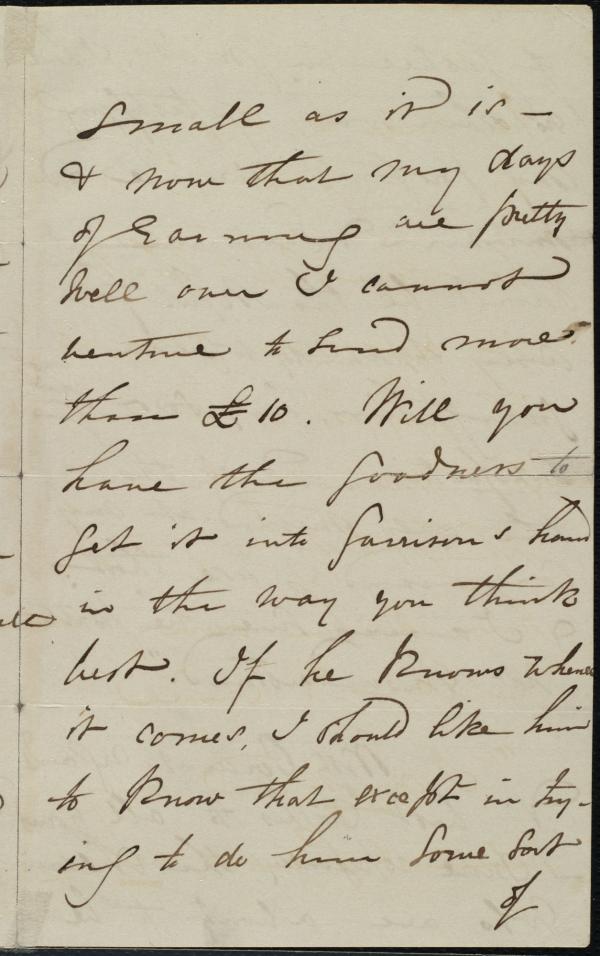 small as it is —
& now that my days
of Earning are pretty
well over I cannot
venture to send more
than £10. Will you
have the goodness to
get it into Garrison's hand
in the way you think
best. If he knows whence
it comes, I should like him
to know that except in try-
ing to do him some sort
of